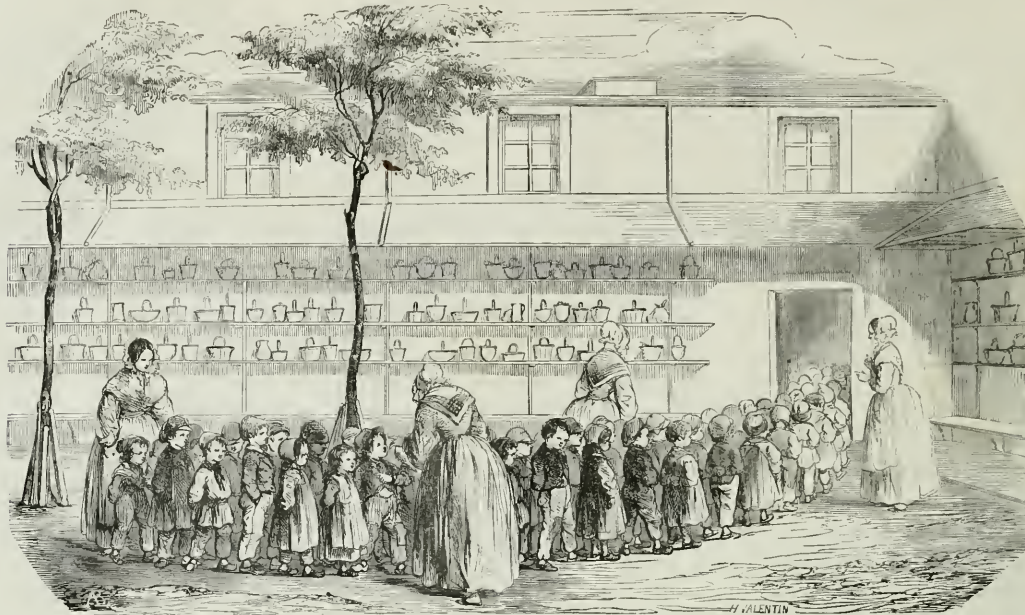 H VALENTIN